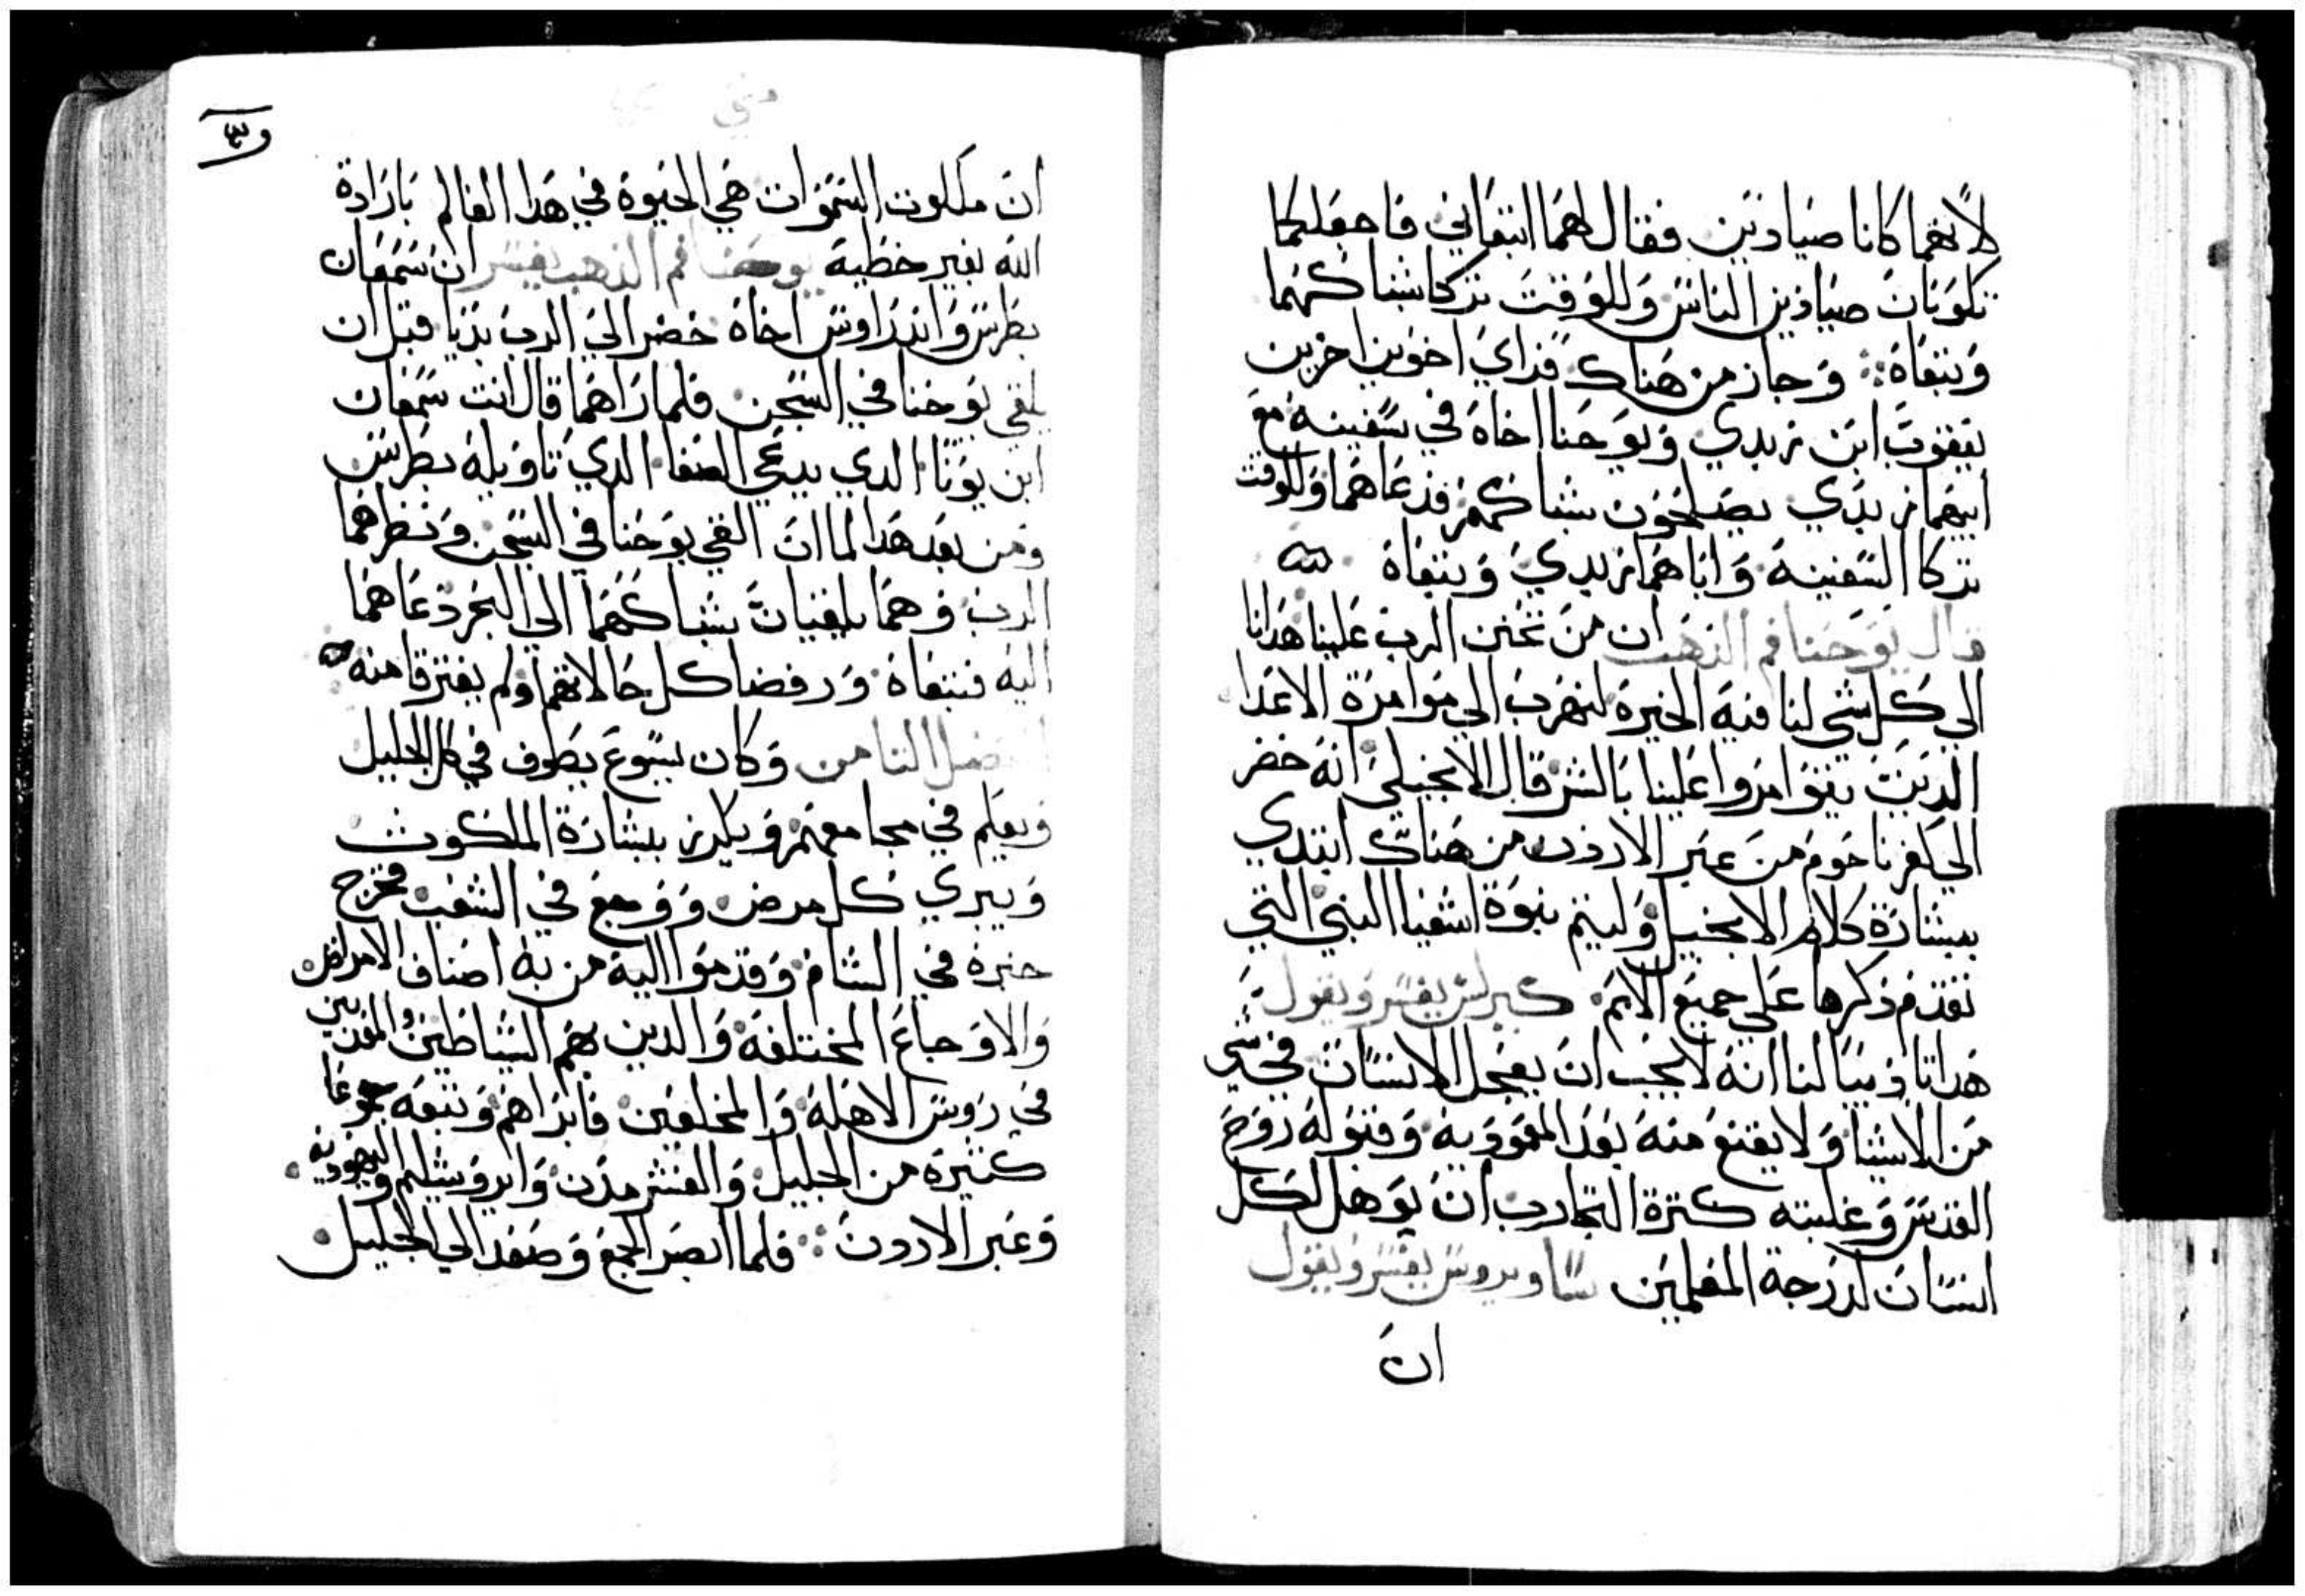 لانهما كانا صيادين فقال لهما اتبعاني فاجعلكما
تكونان صيادين الناس وللوقت تركا شباكهما
وتبعاه وجاز من هناك فراي اخوين اخرين
يعقوب ابن زبدي ويوحنا اخاه في سفينة مع
ابيهما زبدي يصلحون شباكهم فدعاهما وللوقت
تركا السفينة واباهما زبدي وتبعاه
قال يوحنا فم الذهب ان من تحنن الرب علينا هدانا
الي كل شي لنا فيه الخيرة لنهرب الي موامرة الاعدا
الدين يتوامروا علينا بالشر قال الانجيلي انه حضر
الي كفرناحوم من عبر الاردن من هناك ابتدي
ببشارة كلام الانجيل وليتم نبوة اشعيا النبي التي
تقدم ذكرها علي جميع الامم كيرلس يفسر ويقول
هدا تاديبا لنا انه لا يجب ان يعجل الانسان في شي
من الاشيا ولا يقنع منه بعد المعمودية وقبوله روح
القدس وغلبته كثرة التجارب ان يوهل لكل
انسان لدرجة المعلمين ساويروس يفسر ويقول
ان
متي
ان ملكوت السموات هي الحيوة في هدا العالم بارادة
الله بغير خطية يوحنا فم الذهب يفسر ان سمعان
بطرس واندراوس اخاه حضر الي الرب بديا قبل ان
يلقي يوحنا في السجن فلما راهما قال انت سمعان
ابن يونا الدي يدعي الصفا الدي تاويله بطرس
ومن بعد هدا لما ان القي يوحنا في السجن ونظرهما
الرب وهما يلقيان شباكهما الي البحر دعاهما
اليه فتبعاه ورفضا كل حالاتهما ولم يفترقا منه
الفصل الثامن وكان يسوع يطوف في كل الجليل
ويعلم في مجامعهم ويكرز ببشارة الملكوت
ويبري كل مرض ووجع في الشعب فخرج
خبره في الشام وقدموا اليه من به اصناف الامراض
والاوجاع المختلفة والدين بهم الشياطين والمعدبين
في روس الاهلة والمخلعين فابراهم وتبعه جموعا
كثيرة من الجليل والعشر مدن وايروشليم واليهودية
وعبر الاردن فلما ابصر الجمع وصعد الي الجليل